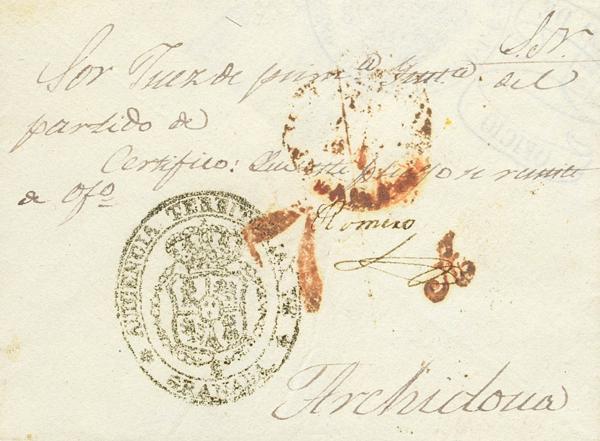 S. N.
Sor Juez de prima. Insta. del
partido de
Certifico: Que este pliego se remite
de Ofo.
Romero
AUDIENCIA TERRITORIAL
GRANADA
Archidona